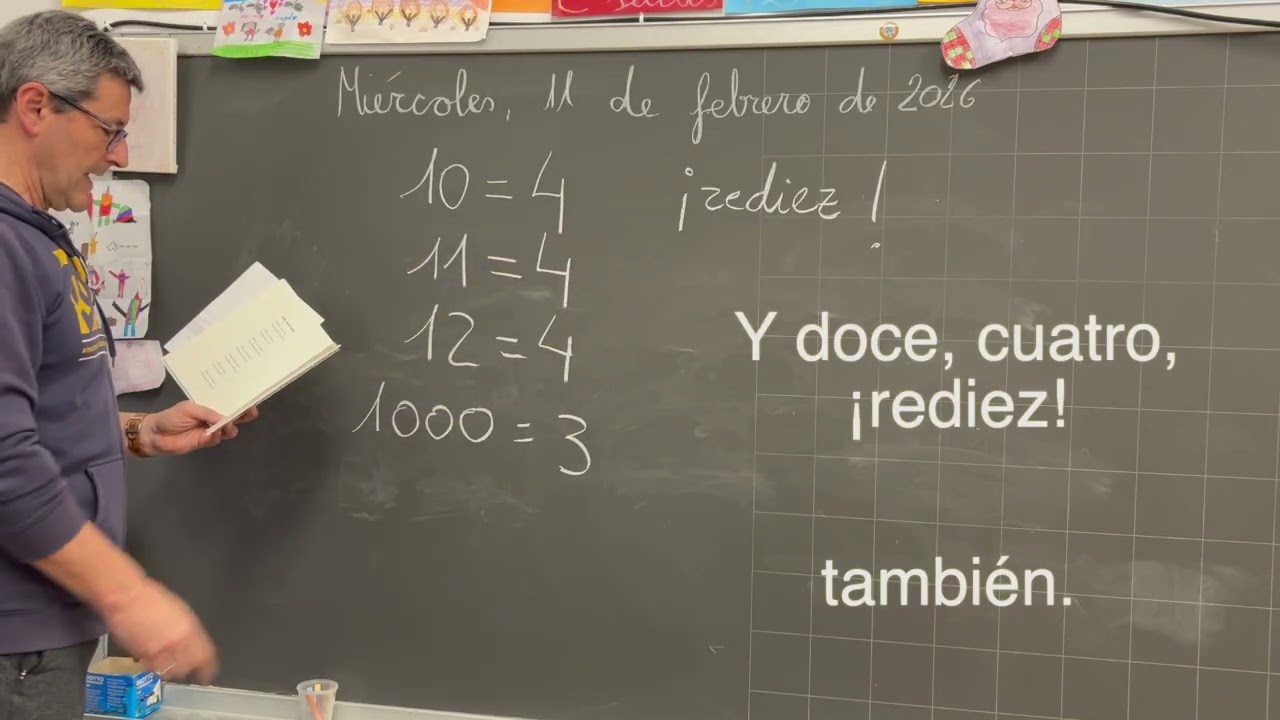 Miércoles, 11 de febrero de 2026
10 = 4 ¡rediez!
11 = 4
12 = 4
1000 = 3
Y doce, cuatro,
¡rediez!
también.
GIOTTO